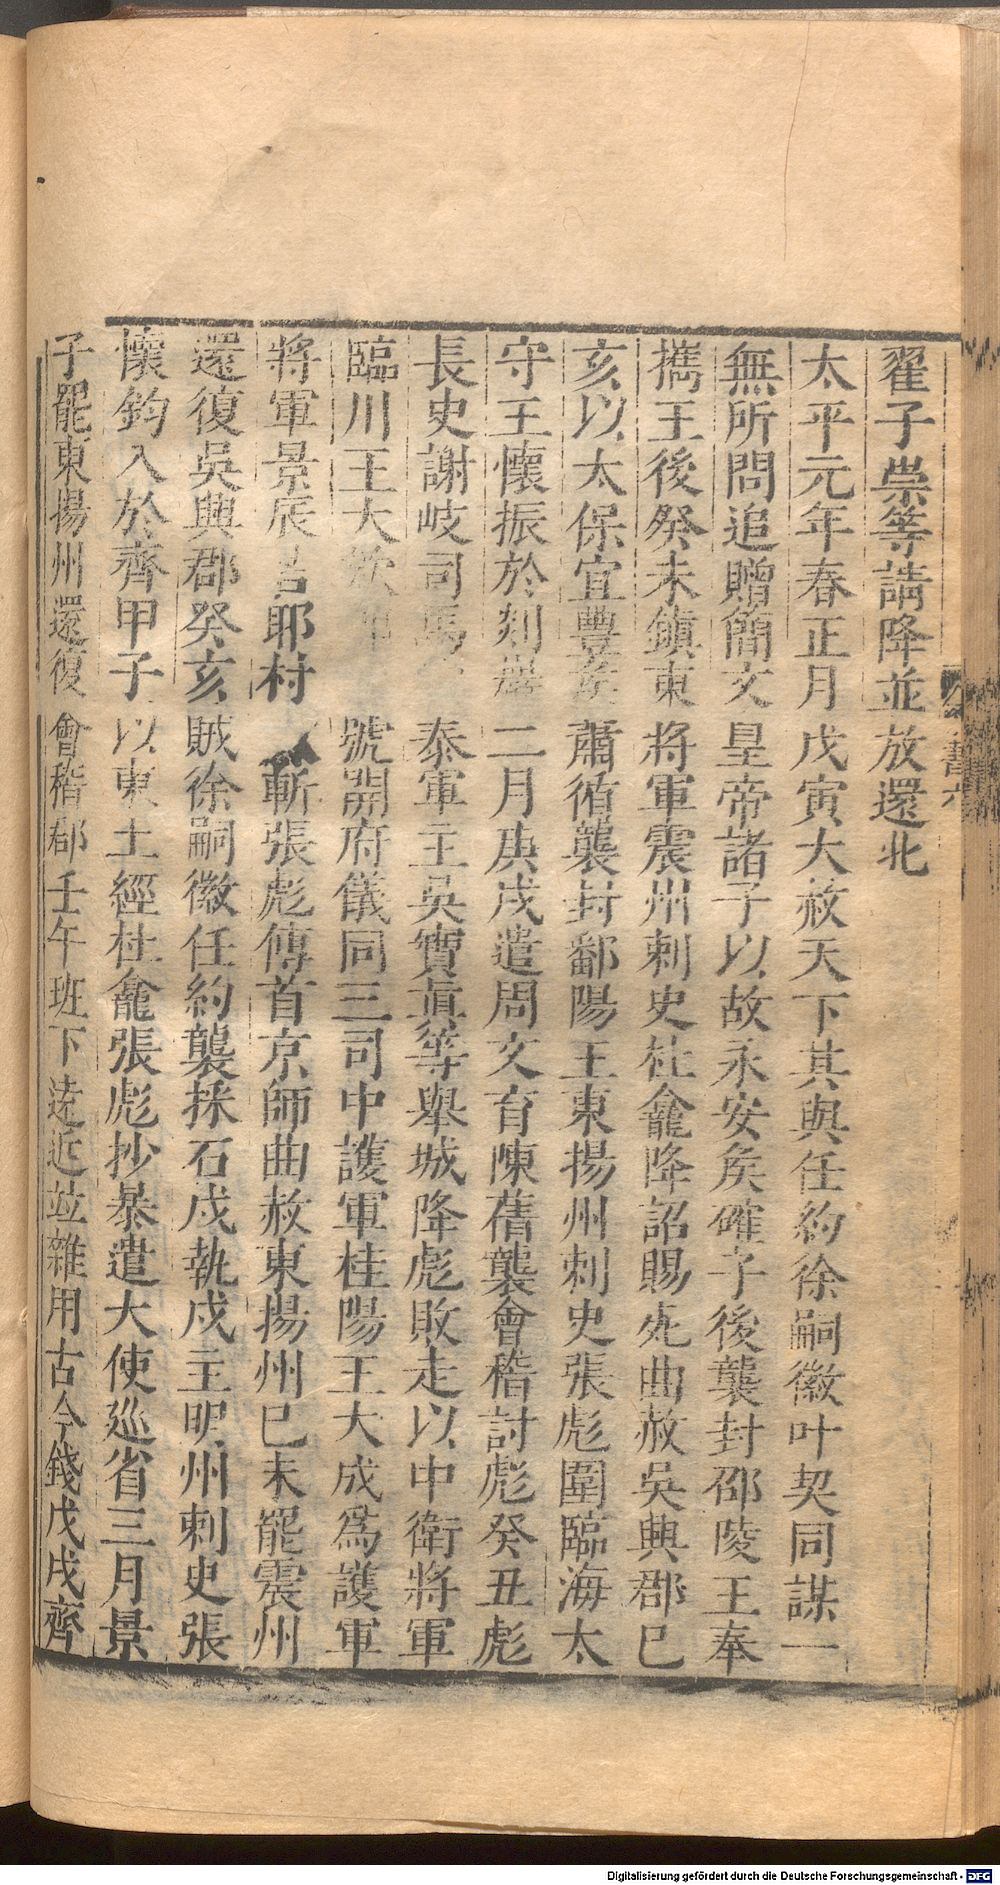 翟子崇等請降並放還北
太平元年春正月戊寅大赦天下其與任約徐嗣徽叶契同謀一
無所問追贈簡文皇帝諸子以故永安矦確子後襲封邵陵王奉
攜王後癸未鎮東將軍震州刺史杜龕降詔賜死曲赦吳興郡巳
亥以太保宜豐矦蕭循襲封鄱陽王東揚州刺史張彪圍臨海太
守王懷振於剡巖二月庚戌遣周文育陳蒨襲會稽討彪癸丑彪
長史謝岐司馬 泰軍主吳寶眞等舉城降彪敗走以中衛將軍
臨川王大欵 號開府儀同三司中護軍桂陽王大成爲護軍
將軍景辰若耶村 斬張彪傳首京師曲赦東揚州巳未罷震州
還復吳興郡癸亥賊徐嗣徽任約襲採石戍執戍主明州刺史張
懷鈞入於齊甲子以東土經杜龕張彪抄暴遣大使巡省三月景
子罷東揚州還復會稽郡壬午班下遠近並雜用古今錢戊戌齊
書六
Digitalisierung gefördert durch die Deutsche Forschungsgemeinschaft - DFG